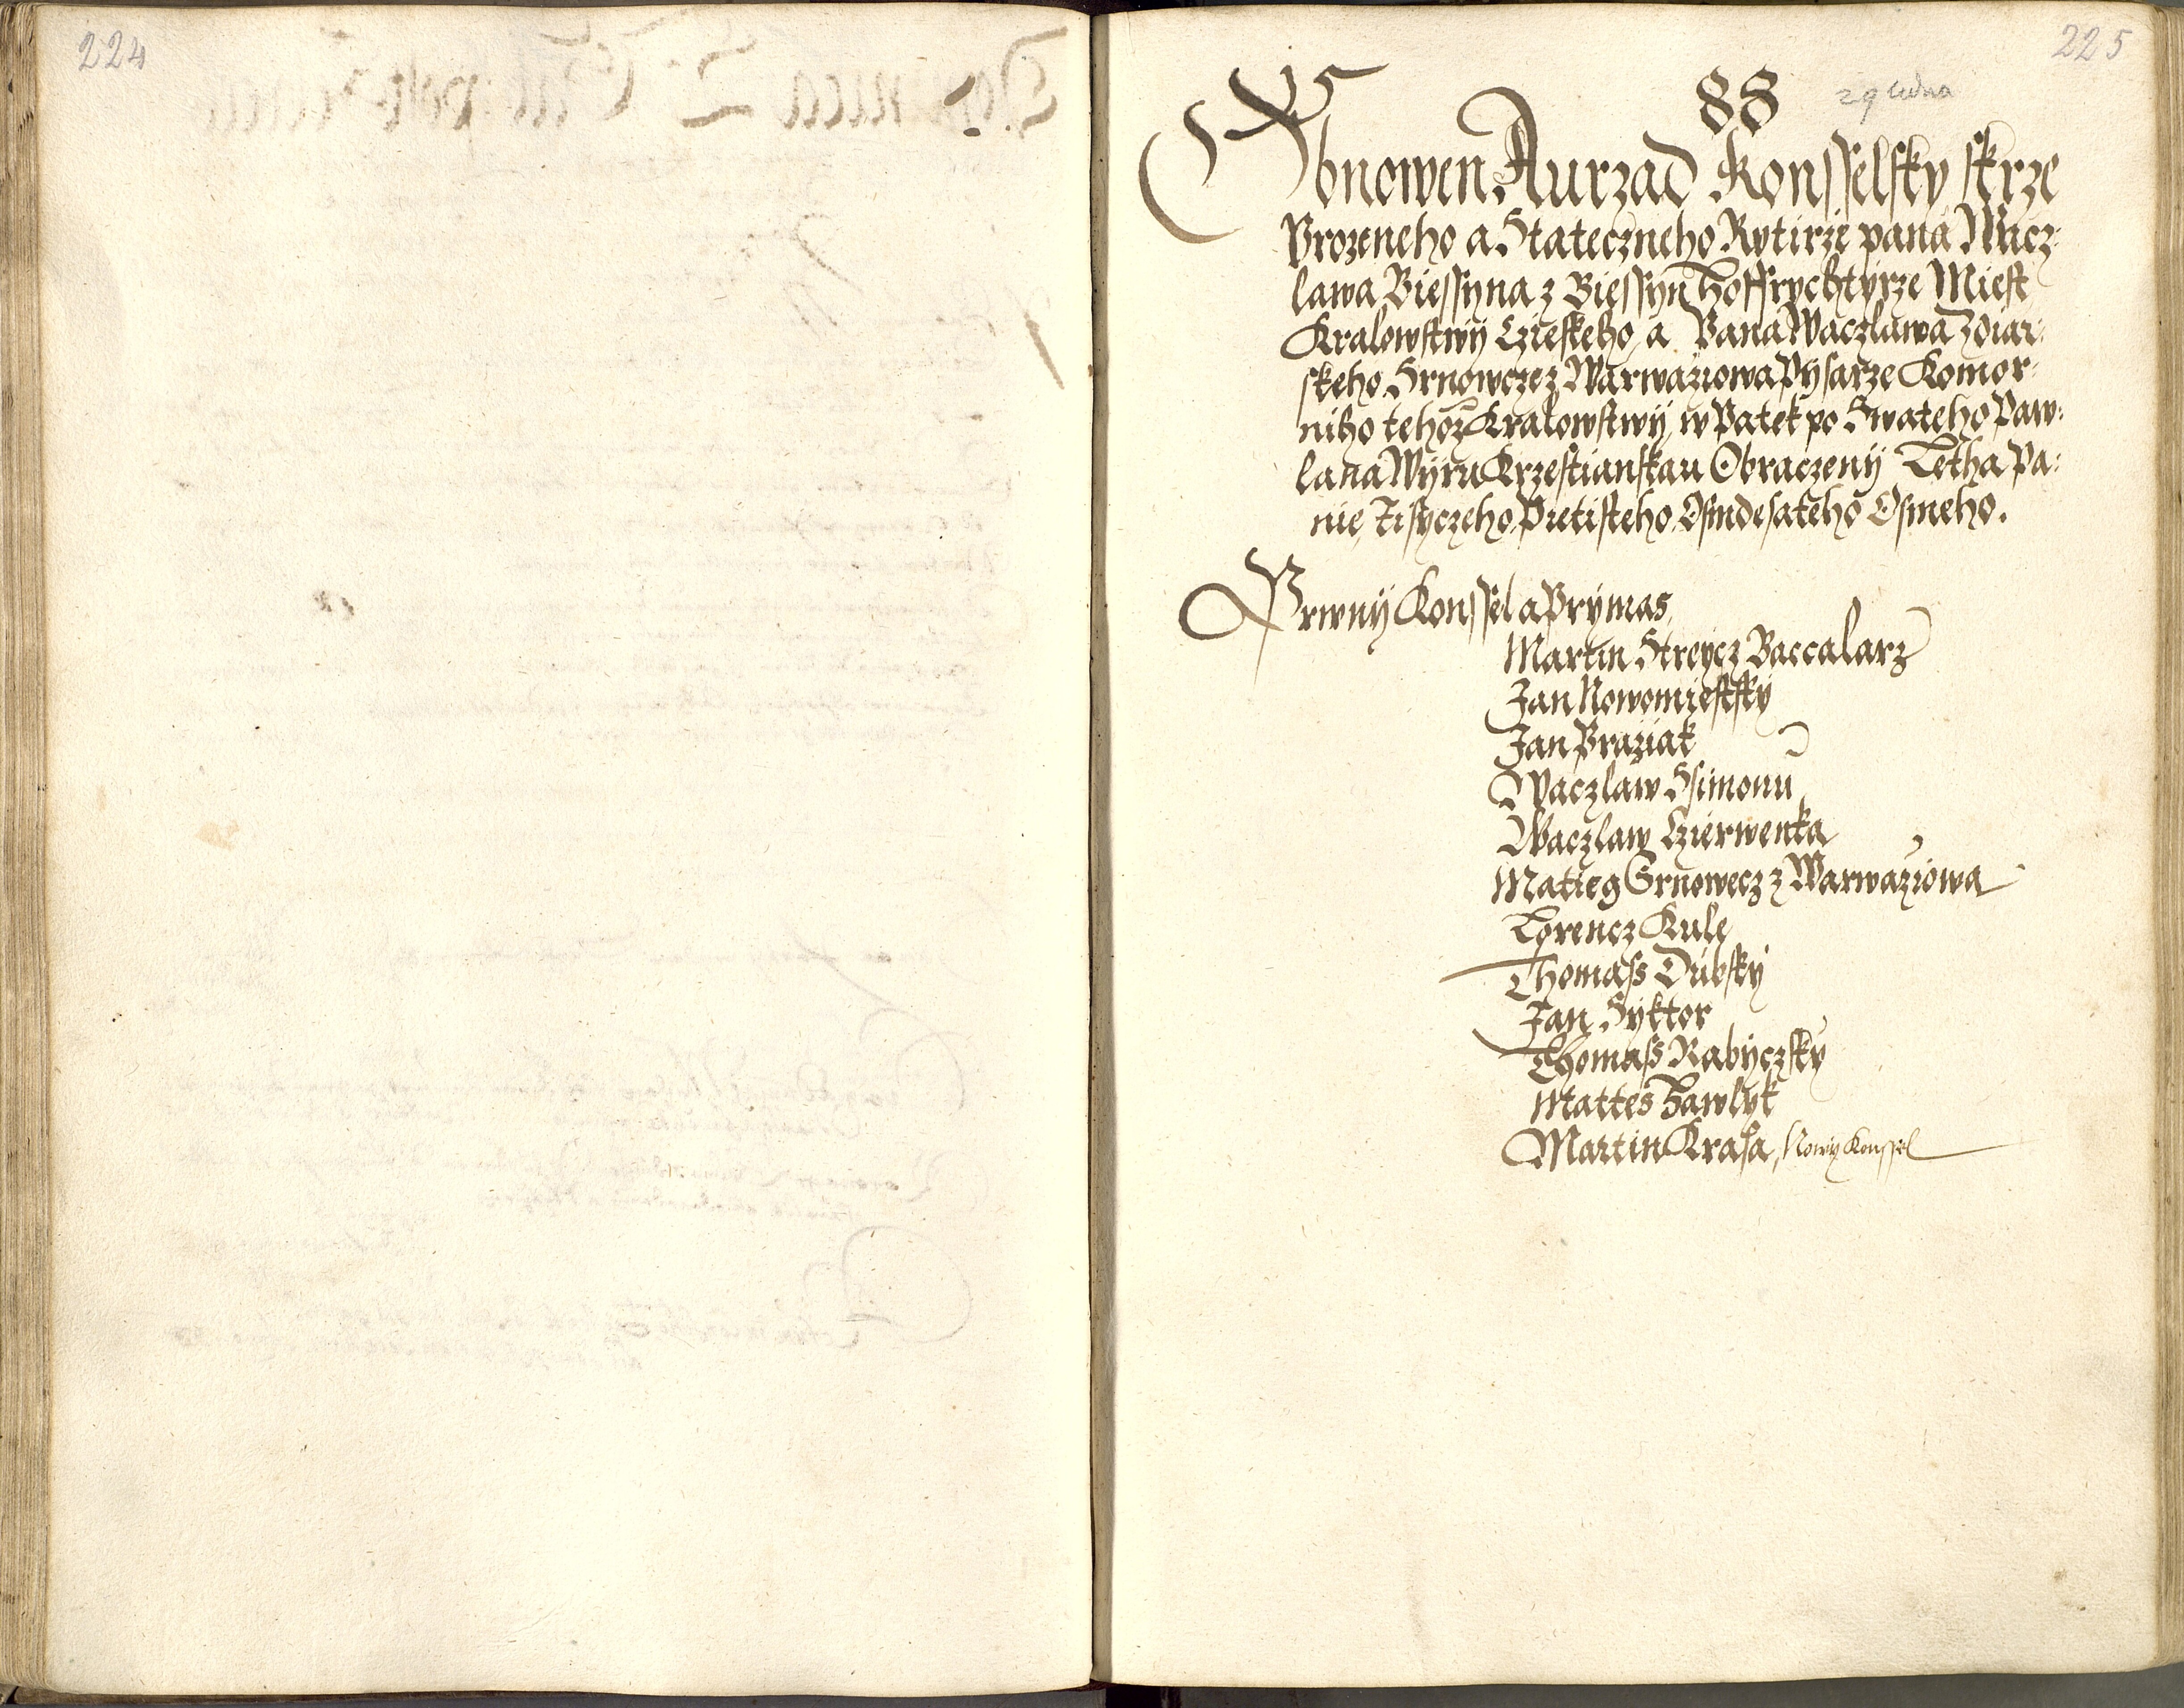 224
225
88
29 ledna
Obnowen Aurzad Konsselsky skrze
Vrozeneho a Stateczneho Rytirze pana Wacz-
lawa Biessyna z Biessyn Hoffrychtyrze Miest
Kralowstwij Czieskeho, a Pana Waczlawa Zdiar-
skeho Srnowcze z Warwaziowa Pysarze Komor-
niho tehoz Kralowstwij, w Patek po Swateho Paw-
la na Wijru Krzestianskau Obraczenij Letha Pa-
nie, Tisyczeho, Pietisteho, Osmdesateho Osmeho.
Prwnij Konssel a Prymas,
Martin Streycz Baccalarz
Jan Nowomiestsky
Jan Praziak
Waczlaw Ssimonu
Waczlaw Czierwenka
Matieg Srnowecz z Warwaziowa
Lorencz Kule
Thomass Dubsky
Jan Syktor
Thomass Rabyczsky
Mattes Hawlyk
Martin Krasa, Nowy Konssel